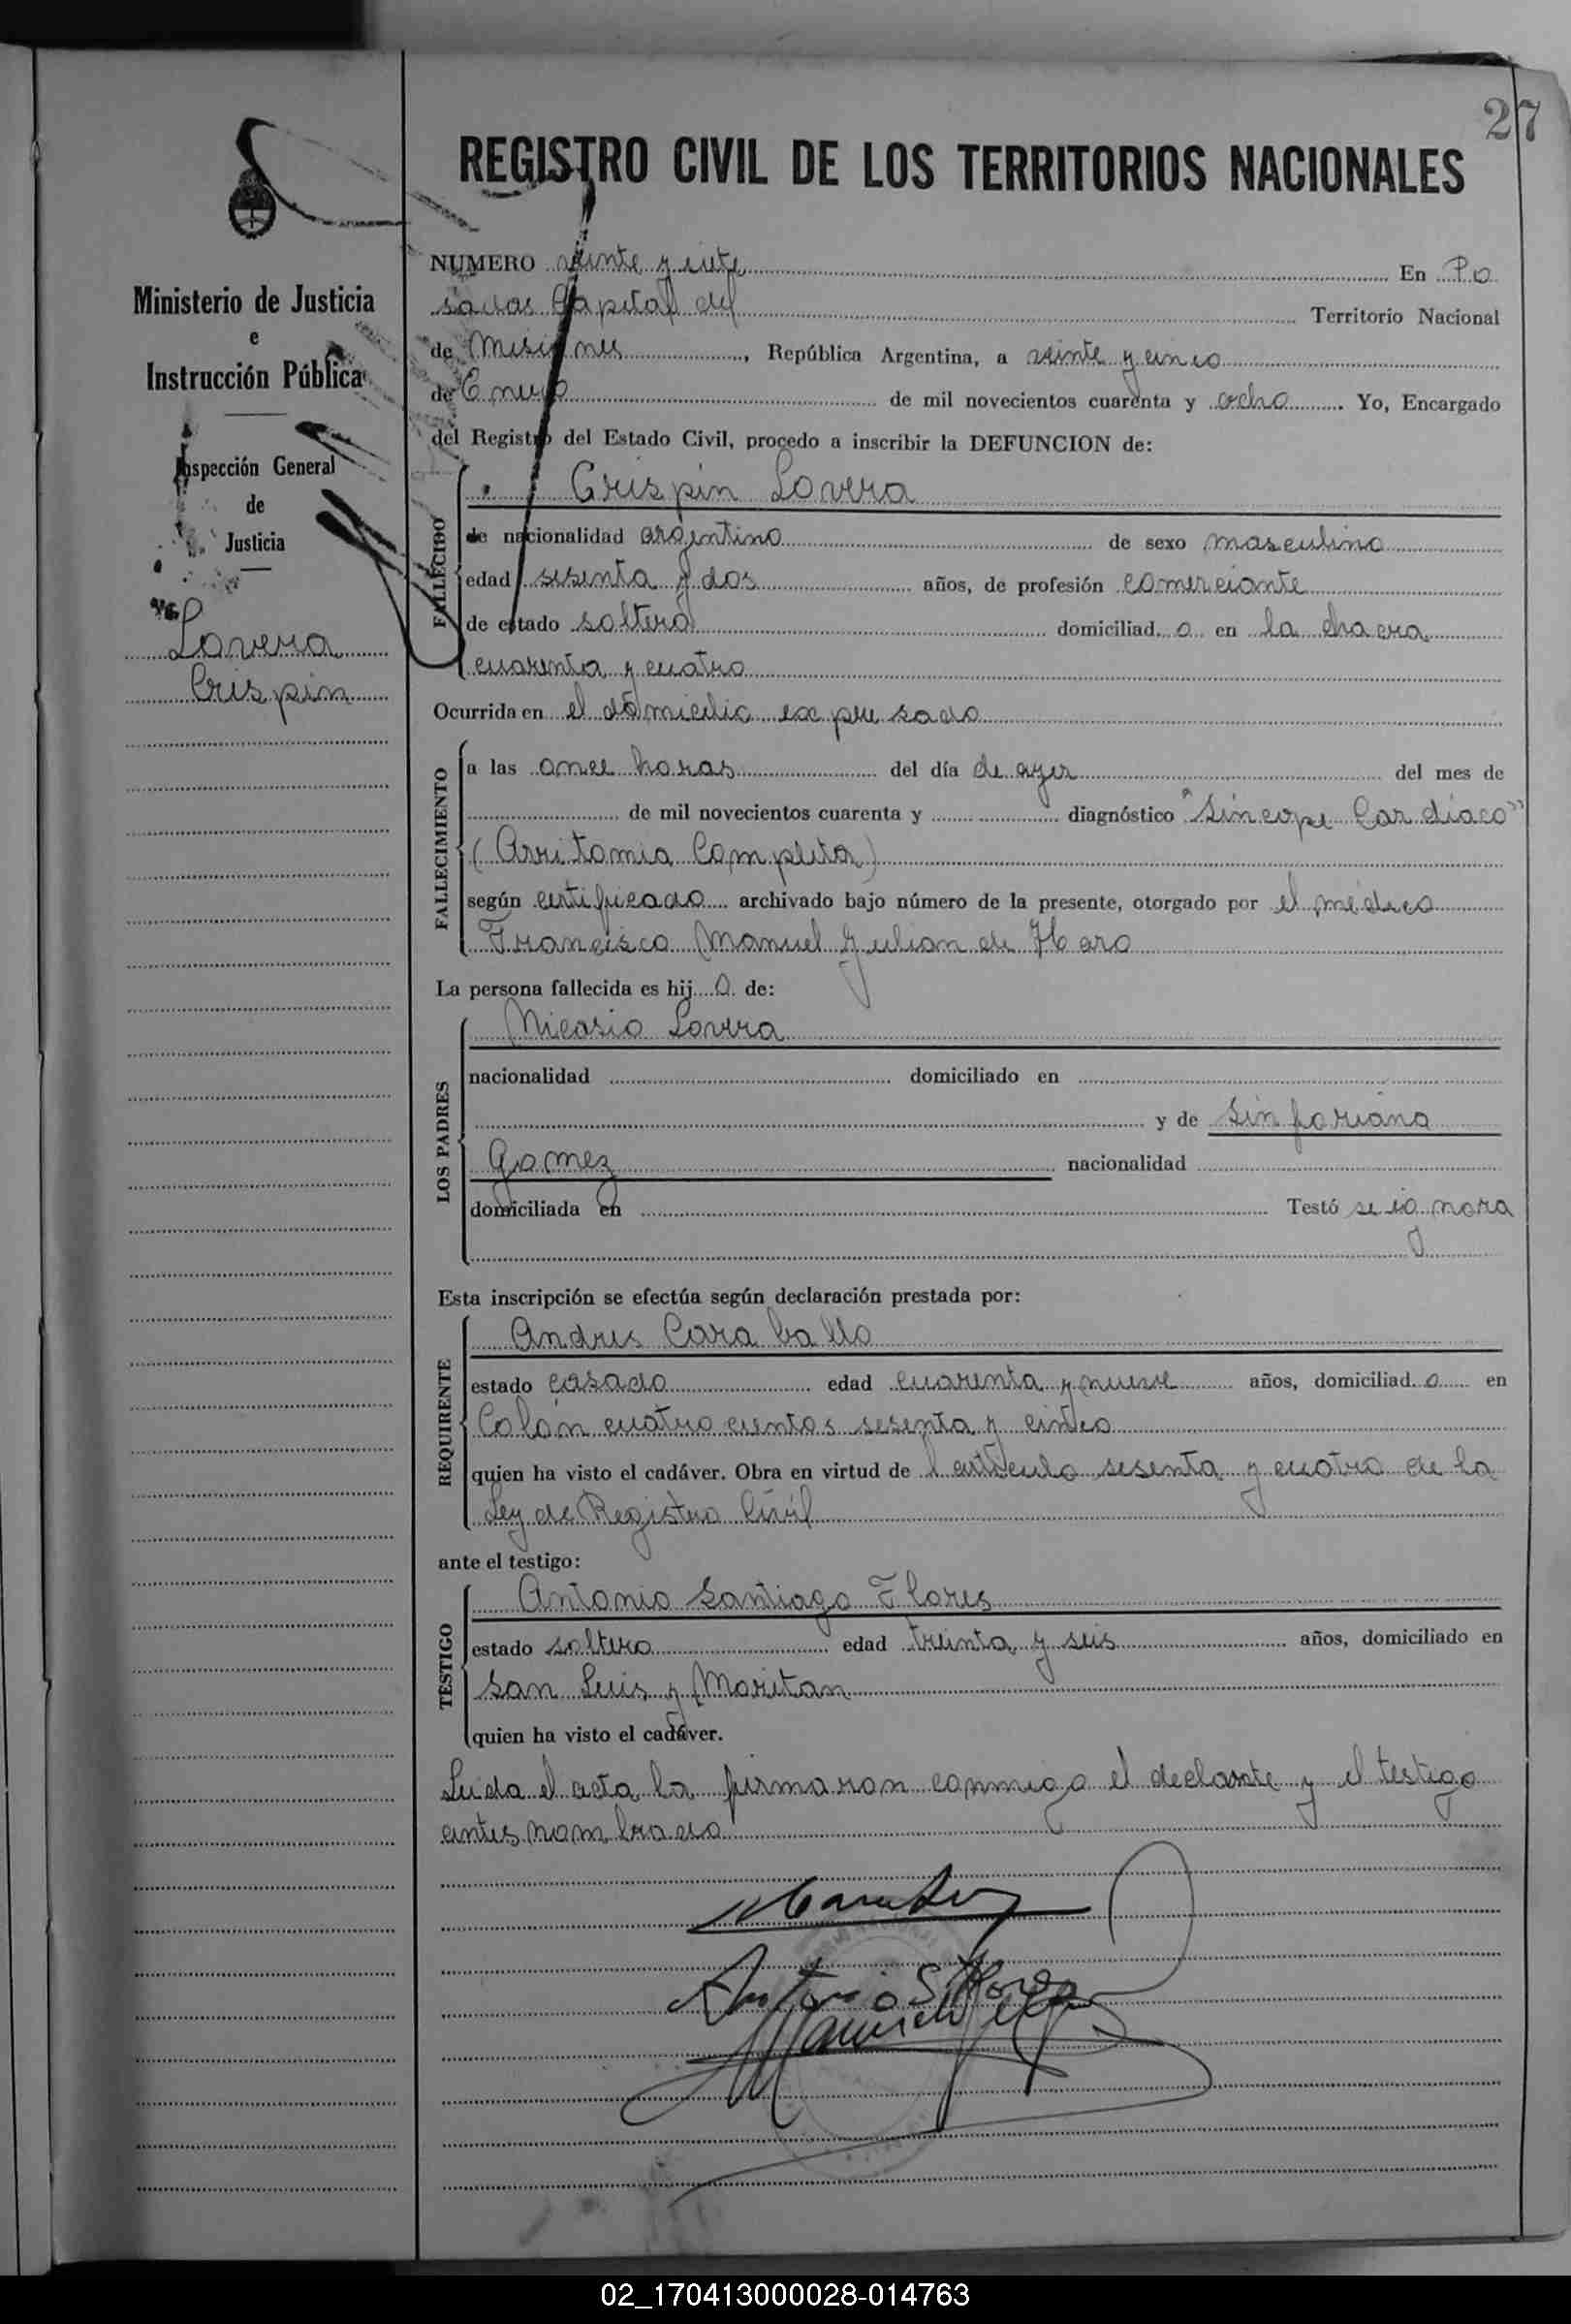 27
REGISTRO CIVIL DE LOS TERRITORIOS NACIONALES
Ministerio de Justicia
e
Instrucción Pública
Inspección General
de
Justicia
Lovera
Crispin
NUMERO veinte y siete En Po
sadas Capital del Territorio Nacional
de Misiones, República Argentina, a veinte y cinco
de Enero de mil novecientos cuarenta y ocho. Yo, Encargado
del Registro del Estado Civil, procedo a inscribir la DEFUNCION de:
FALLECIDO
Crispin Lovera
de nacionalidad argentino de sexo masculino
edad sesenta y dos años, de profesión comerciante
de estado soltero domiciliad o en la chacra
cuarenta y cuatro
Ocurrida en el domicilio expresado
FALLECIMIENTO
a las once horas del día de ayer del mes de
de mil novecientos cuarenta y diagnóstico "Síncope Cardíaco"
(Arritomia Completa)
según certificado archivado bajo número de la presente, otorgado por el médico
Francisco Manuel Julian de Haro
La persona fallecida es hij o de:
LOS PADRES
Nicasio Lovera
nacionalidad domiciliado en
y de Sinforiana
Gomez nacionalidad
domiciliada en Testó se ignora
Esta inscripción se efectúa según declaración prestada por:
REQUIRENTE
Andres Caraballo
estado casado edad cuarenta y nueve años, domiciliad o en
Colón cuatrocientos sesenta y cinco
quien ha visto el cadáver. Obra en virtud de l artículo sesenta y cuatro de la
Ley de Registro Civil
ante el testigo:
TESTIGO
Antonio Santiago Flores
estado soltero edad treinta y seis años, domiciliado en
San Luis y Moritan
quien ha visto el cadáver.
Leida el acta la firmaron conmigo el declarate y el testigo
antes nombrado
Antonio S Flores
02_170413000028-014763